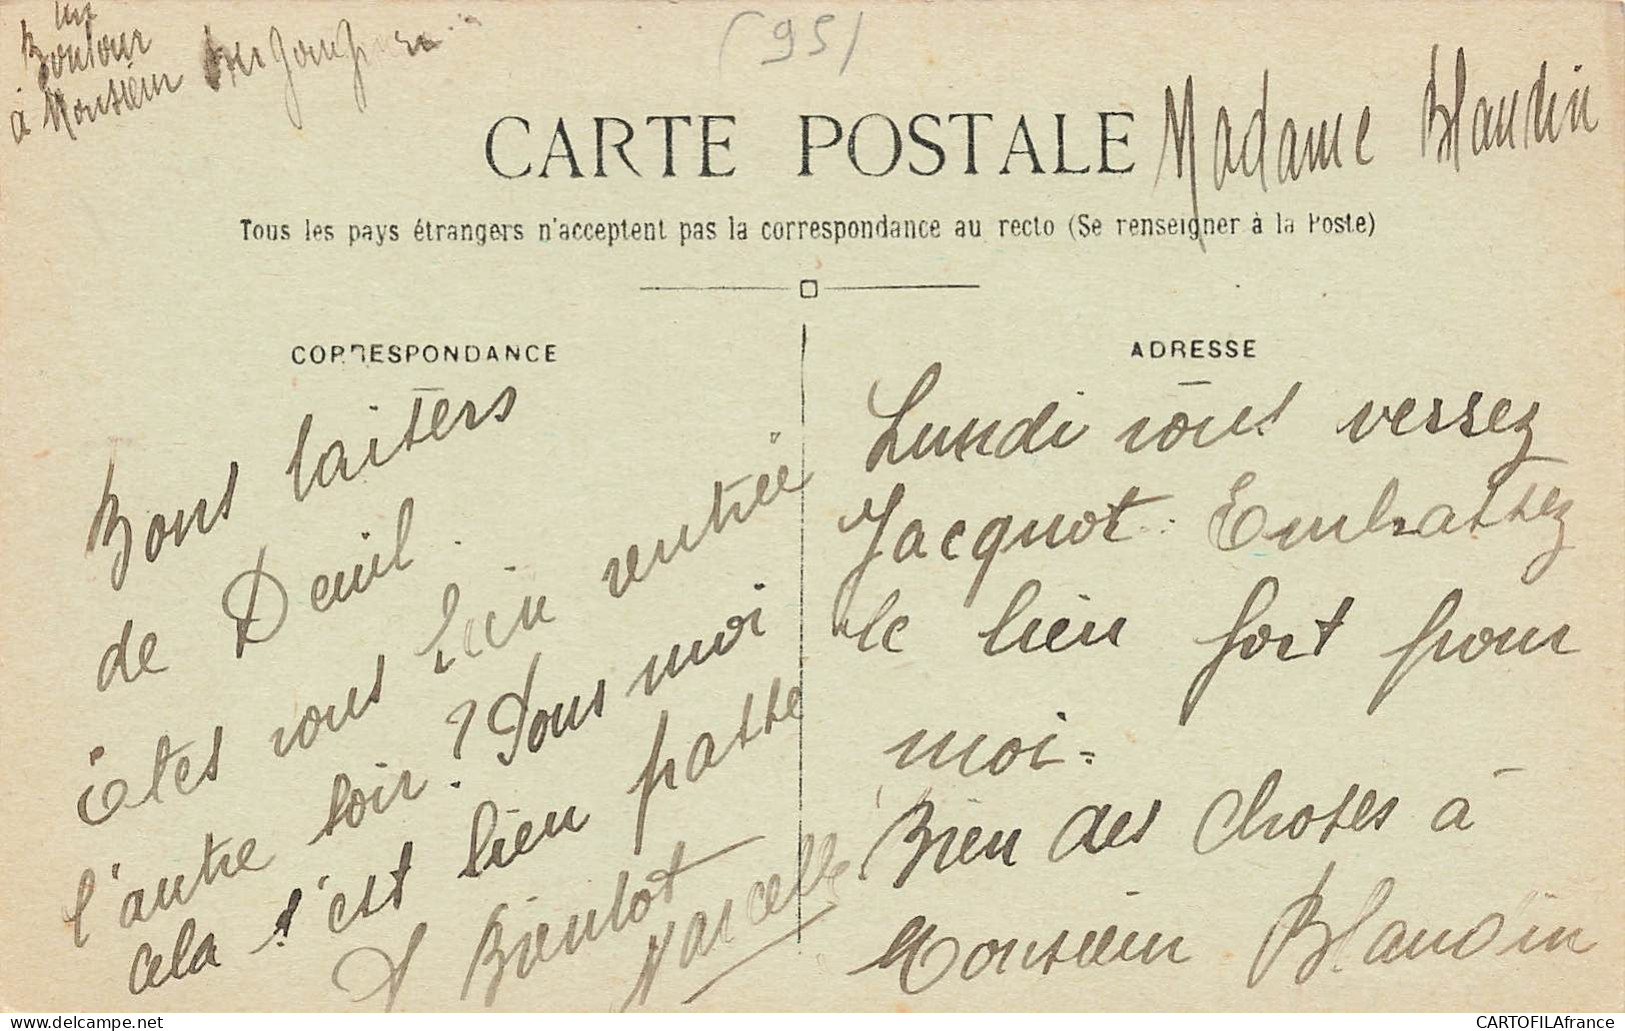 un
Bonjour
à Monsieur
(95)
Madame Blaudin
CARTE POSTALE
Tous les pays étrangers n'acceptent pas la correspondance au recto (Se renseigner à la Poste)
CORRESPONDANCE
Bons baisers
de Deuil.
êtes vous bien rentrée
l'autre soir? Pour moi
cela s'est bien passé
A Bientot
Marcelle
ADRESSE
Lundi vous verrez
Jacquot. Embrassez
le bien fort pour
moi.
Bien des choses à
Monsieur Blaudin
© DELCAMPE Marketplace
CARTOFILAfrance